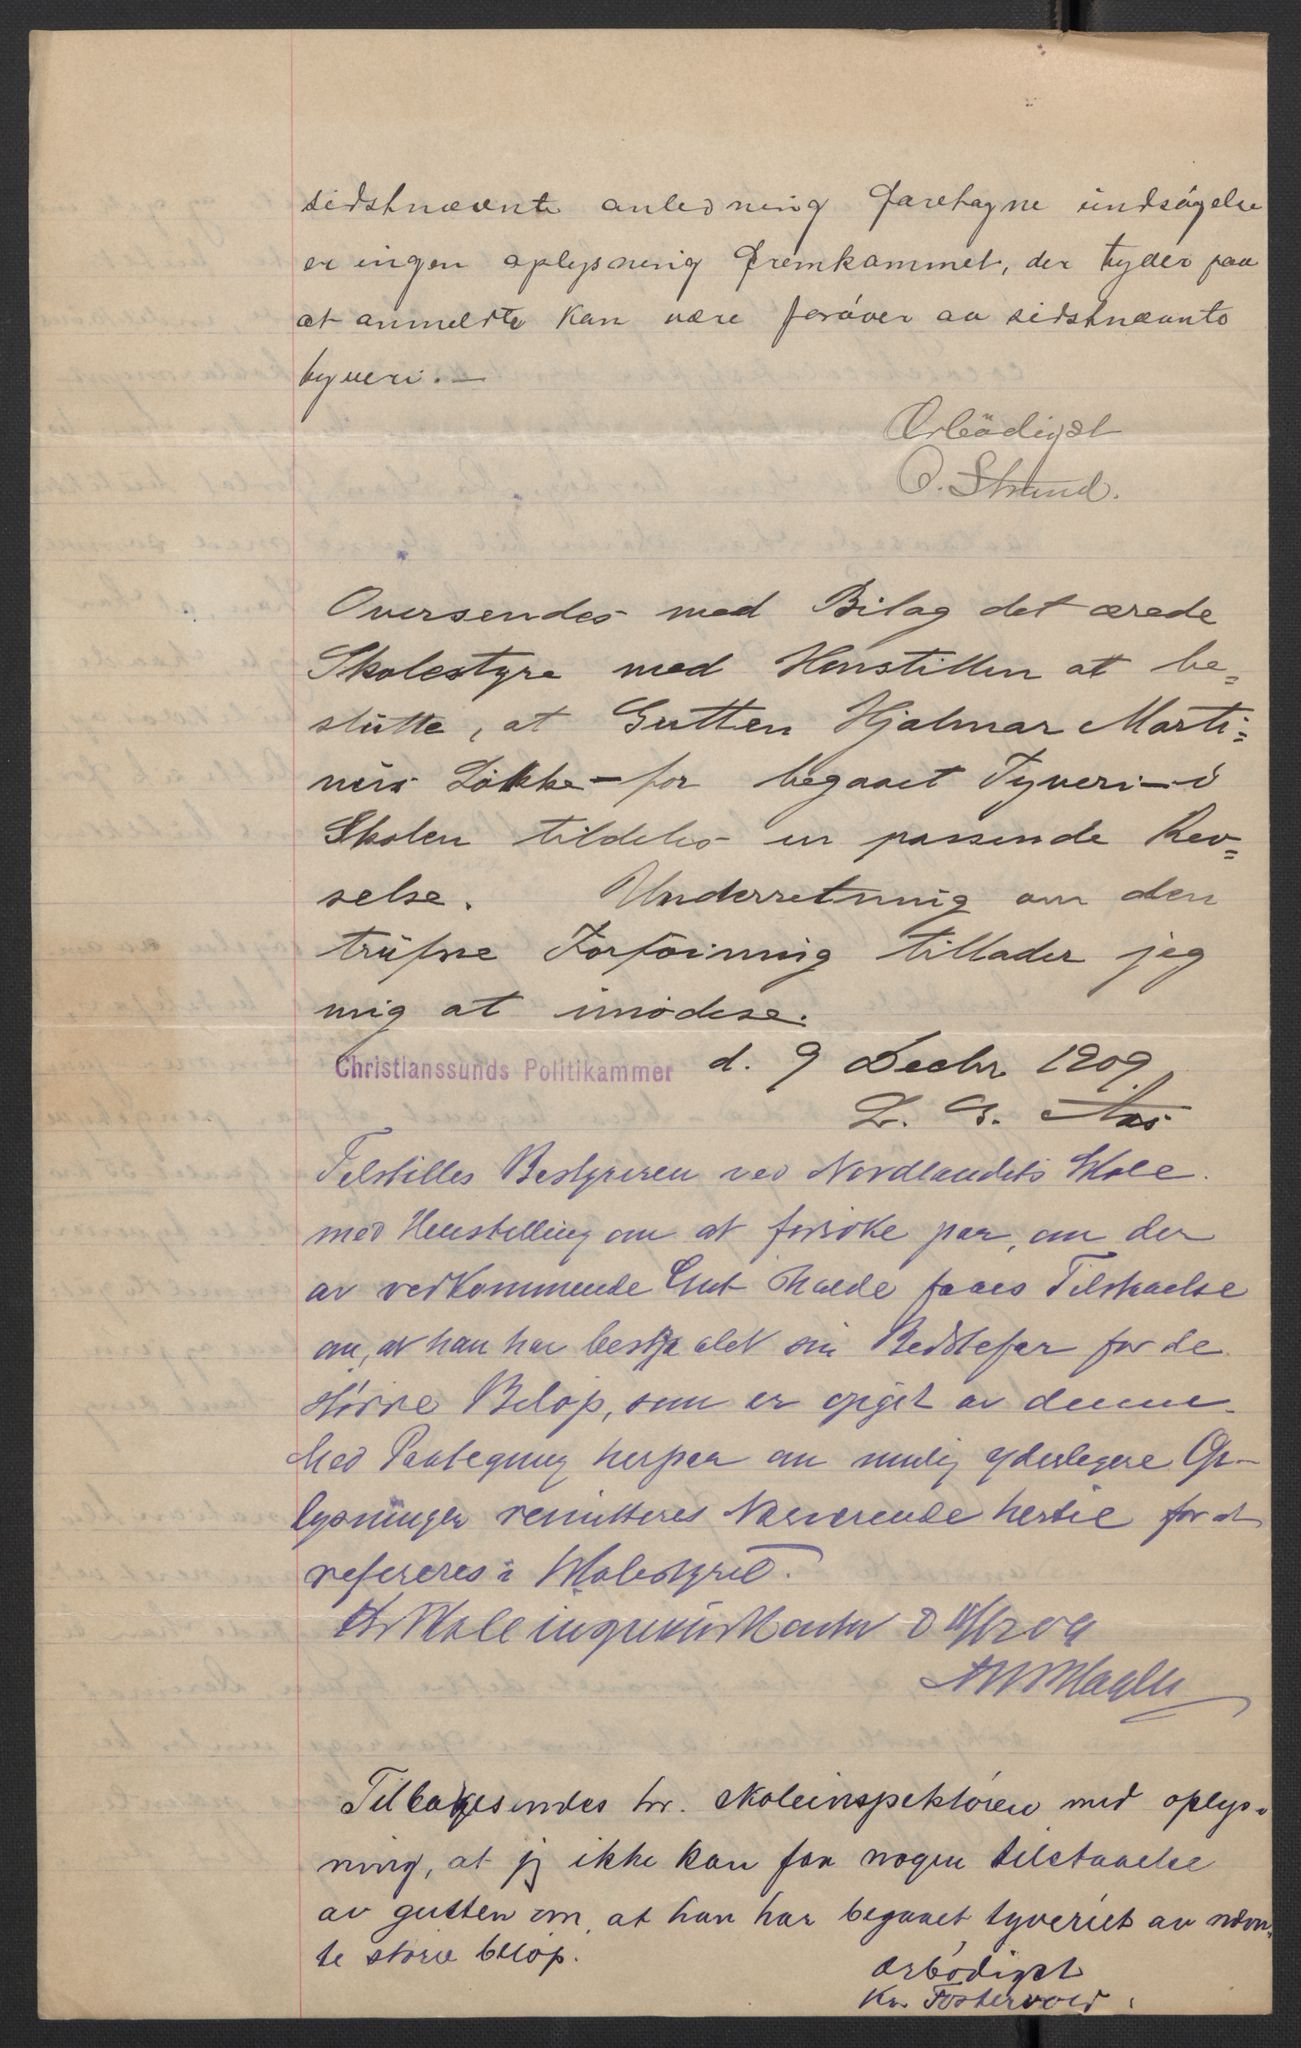 sidstnævnte anledning foretagne undsøgelse
er ingen oplysning fremkommet, der tyder paa
at anmeldte kan være forøver av sidstnævnte
tyveri. —
Ærbödigst
O. Strand.
Oversendes med Bilag det ærede
Skolestyre med Henstillen at be=
slutte, at Gutten Hjalmar Marti=
nus Løkke – for begaaet Tyveri – i
Skolen tildeles en passende Rev=
selse. Underretning om den
trufne Forføining tillader jeg
mig at imødese.
Christianssunds Politikammer d. 9 Decbr 1909
Tilstilles Bestyreren ved Nordlandets Skole
med Henstilling om at forsøke paa, om der
av vedkommende Gut skulde faaes Tilstaaelse
om, at han har bestjaalet sin Bedstefar for de
større Beløp, som er opgit av denne.
Med Paategning herpaa om mulig yderligere Op-
lysninger remitteres Nærværende hertil for at
refereres i Skolestyret.
Kr.sunds Skoleinspektørkontor d 11/12 09
Tilbakesendes hr. skoleinspektøren med oplys-
ning, at jeg ikke kan faa nogen tilstaaelse
av gutten om, at han har begaaet tyveriet av nævn-
te større beløp.
Ærbødigst
Kr. Fostervold.